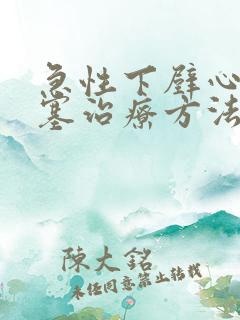 急性下壁心
塞治療方法
陳大銘
未经同意禁止转载